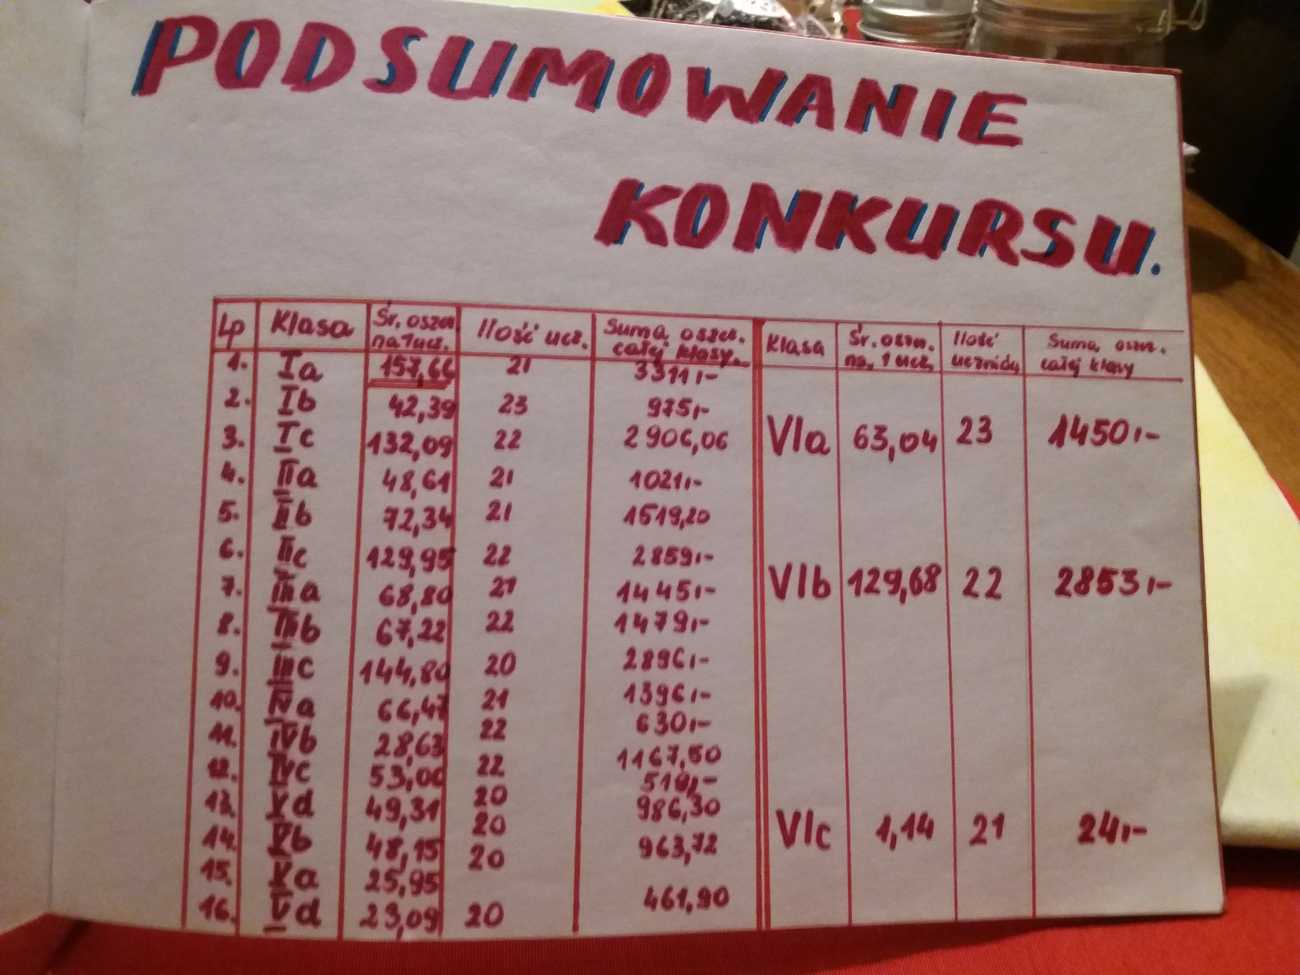 PODSUMOWANIE
KONKURSU.
Lp Klasa Śr. oszcz. na 1 ucz. Ilość ucz. Suma oszcz. całej klasy.
1. Ia 157,66 21 3311,-
2. Ib 42,39 23 975,-
3. Ic 132,09 22 2906,06
4. IIa 48,61 21 1021,-
5. IIb 72,34 21 1519,20
6. IIc 129,95 22 2859,-
7. IIIa 68,80 21 1445,-
8. IIIb 67,22 22 1479,-
9. IIIc 144,80 20 2896,-
10. IVa 66,47 21 1396,-
11. IVb 28,63 22 630,-
12. IVc 53,06 22 1167,50
519,-
13. Vd 49,31 20 986,30
14. Vb 48,15 20 963,72
15. Va 25,95 20
16. Vd 23,09 20 461,90
Klasa Śr. oszcz. na 1 ucz. Ilość uczniów Suma oszcz. całej klasy
VIa 63,04 23 1450,-
VIb 129,68 22 2853,-
VIc 1,14 21 24,-